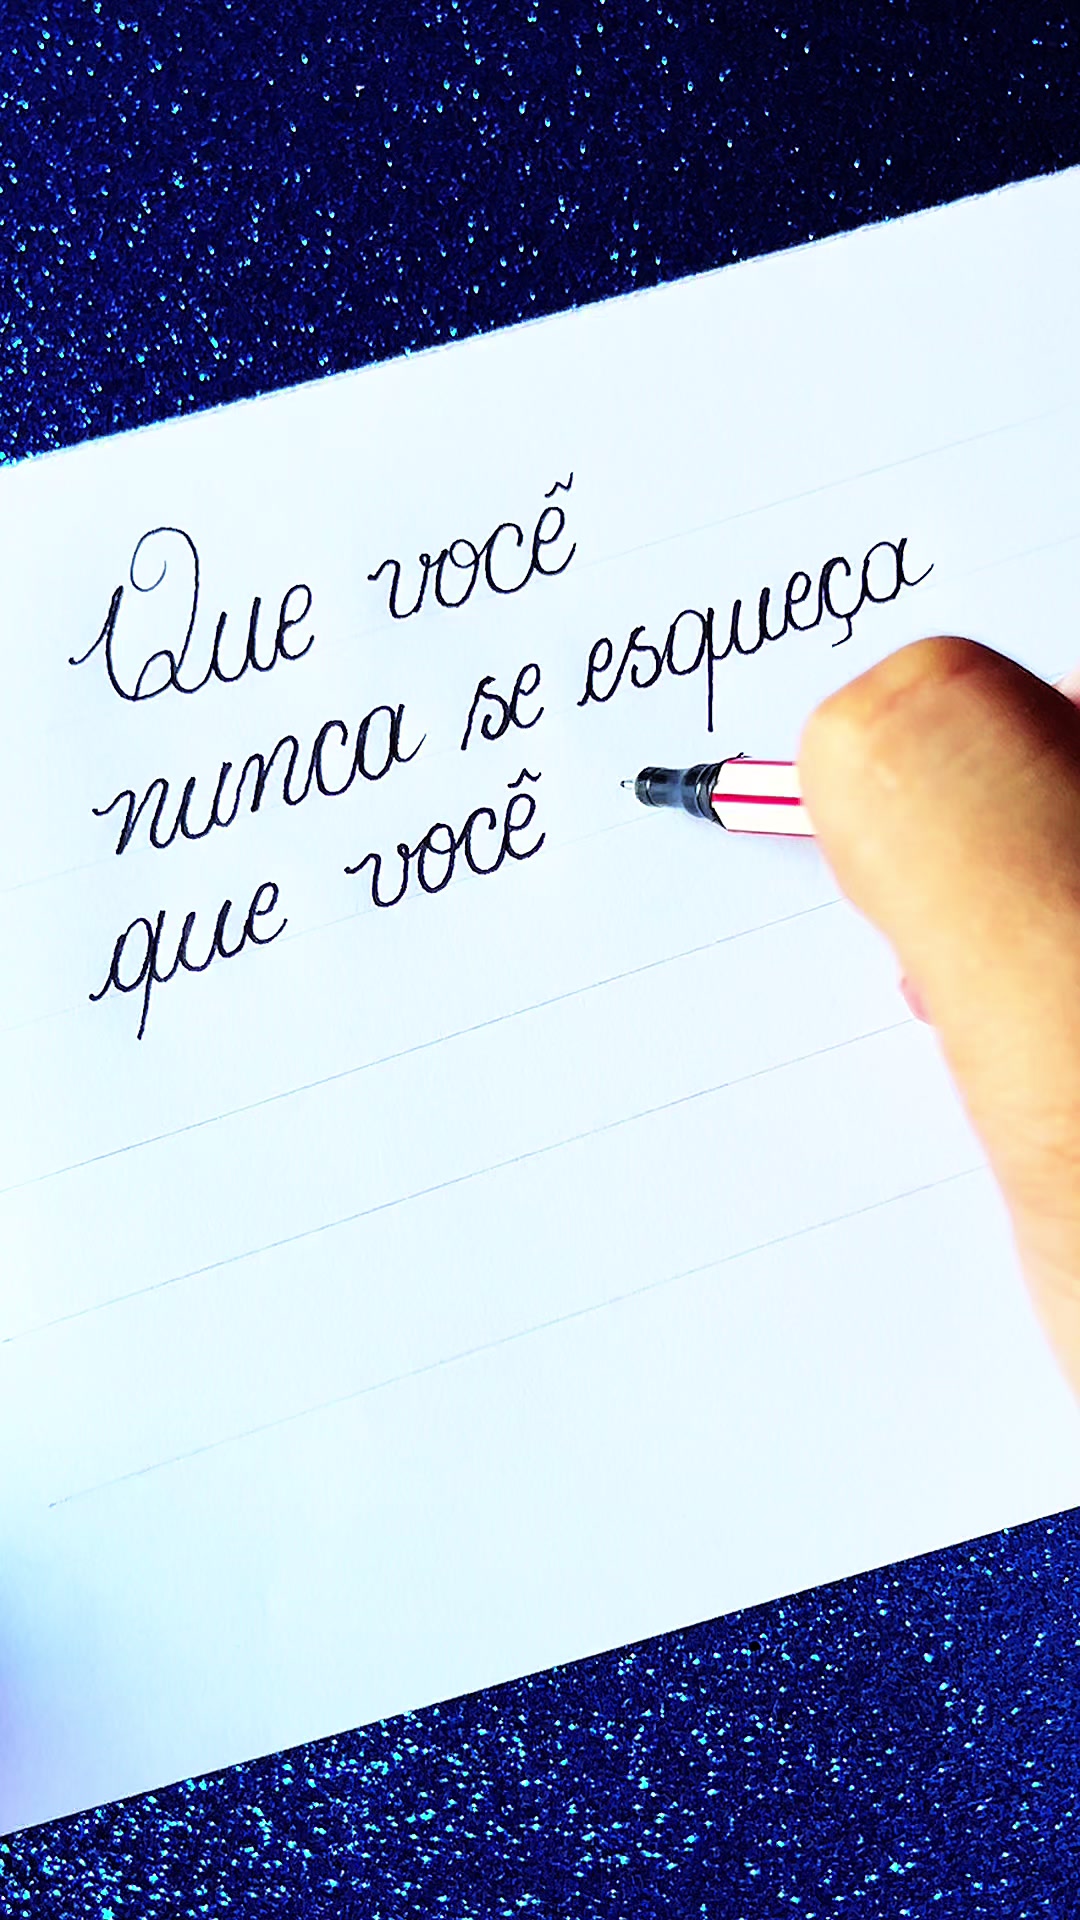 Que você
nunca se esqueça
que você